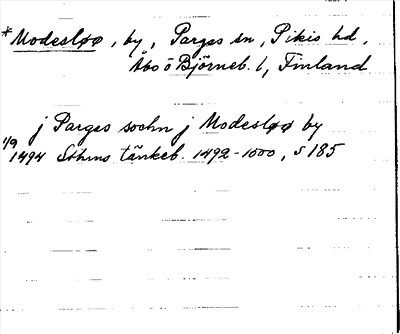 *Modesløø, by, Pargas sn, Pikis hd,
Åbo ö Björneb. l, Finland
j Pargas sochn j Modesløø by
1/9 1494 Sthms tänkeb. 1492-1500, s 185